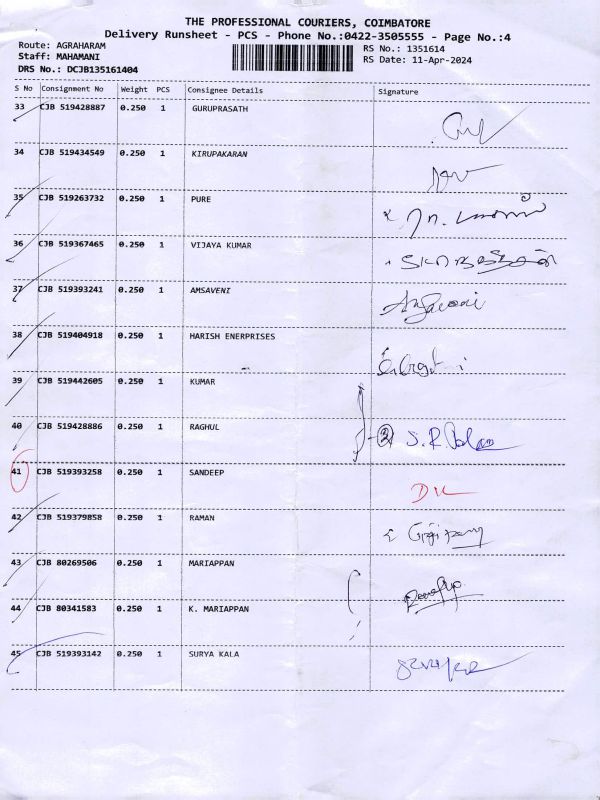 THE PROFESSIONAL COURIERS, COIMBATORE
Delivery Runsheet - PCS - Phone No.:0422-3505555 - Page No.:4
Route: AGRAHARAM RS No.: 1351614
Staff: MAHAMANI RS Date: 11-Apr-2024
DRS No.: DCJB135161404
S No Consignment No Weight PCS Consignee Details Signature
33 CJB 519428887 0.250 1 GURUPRASATH
34 CJB 519434549 0.250 1 KIRUPAKARAN
35 CJB 519263732 0.250 1 PURE
36 CJB 519367465 0.250 1 VIJAYA KUMAR
37 CJB 519393241 0.250 1 AMSAVENI
38 CJB 519404918 0.250 1 HARISH ENERPRISES
39 CJB 519442605 0.250 1 KUMAR
40 CJB 519428886 0.250 1 RAGHUL
41 CJB 519393258 0.250 1 SANDEEP
DL
42 CJB 519379858 0.250 1 RAMAN
43 CJB 80269506 0.250 1 MARIAPPAN
44 CJB 80341583 0.250 1 K. MARIAPPAN
45 CJB 519393142 0.250 1 SURYA KALA